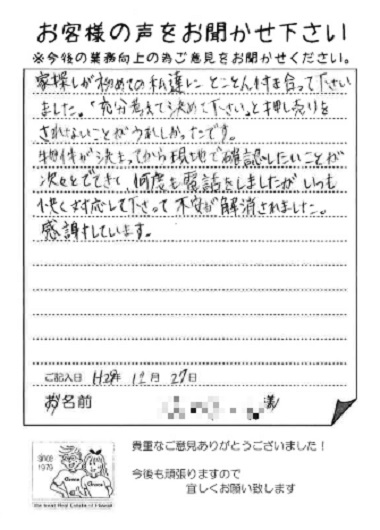 お客様の声をお聞かせ下さい
※今後の業務向上の為ご意見をお聞かせください。
家探しが初めての私達にとことん付き合って下さい
ました。「充分考えて決めて下さい」と押し売りを
されないことがうれしかったです。
物件が決まってから現地で確認したいことが
次々とでてきて、何度も電話をしましたがいつも
快く対応して下さって不安が解消されました。
感謝しています。
ご記入日 H28年 12月 27日
お名前 様
since
1976
貴重なご意見ありがとうございました！
今後も頑張りますので
宜しくお願い致します